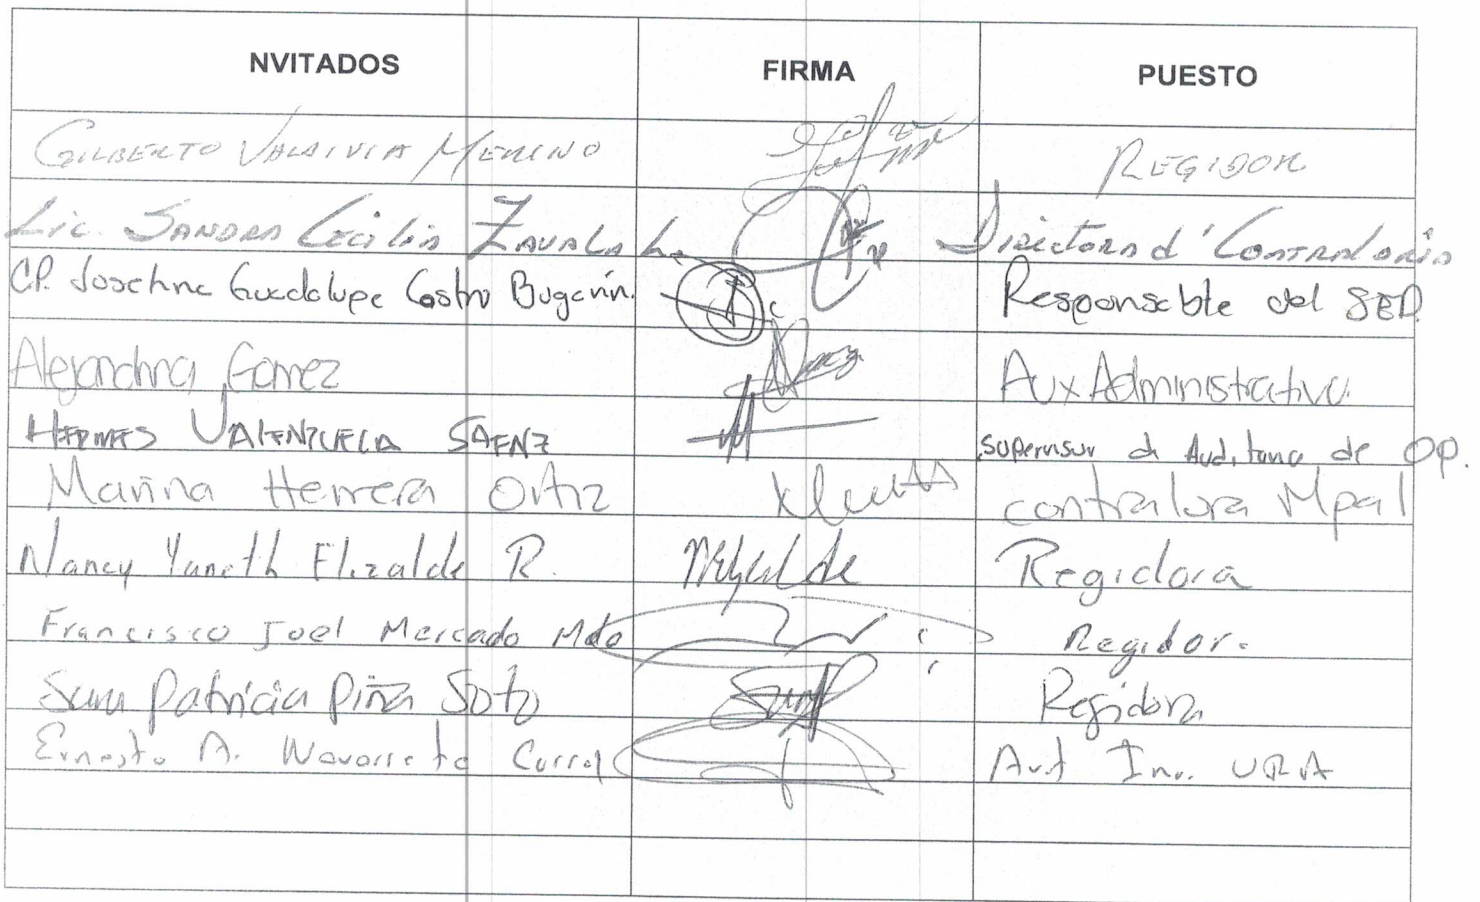 NVITADOS FIRMA PUESTO
GILBERTO VALDIVIA MERINO REGIDOR
Lic. SANDRA Cecilia ZAVALA L. Directora d' Contraloria
CP. Josefina Guadalupe Castro Bugarin. Responsable del SED
Alejandrina Gomez Aux Administrativo.
HERMES VALENZUELA SAENZ Supervisor de Auditoria de OP.
Marina Herrera Ortiz contralora Mpal
Nancy Yaneth Elizalde R. Regidora
Francisco Joel Mercado Mdo Regidor.
Sara Patricia Piña Soto Regidora
Ernesto A. Navarrete Corral Aut Inv. URA